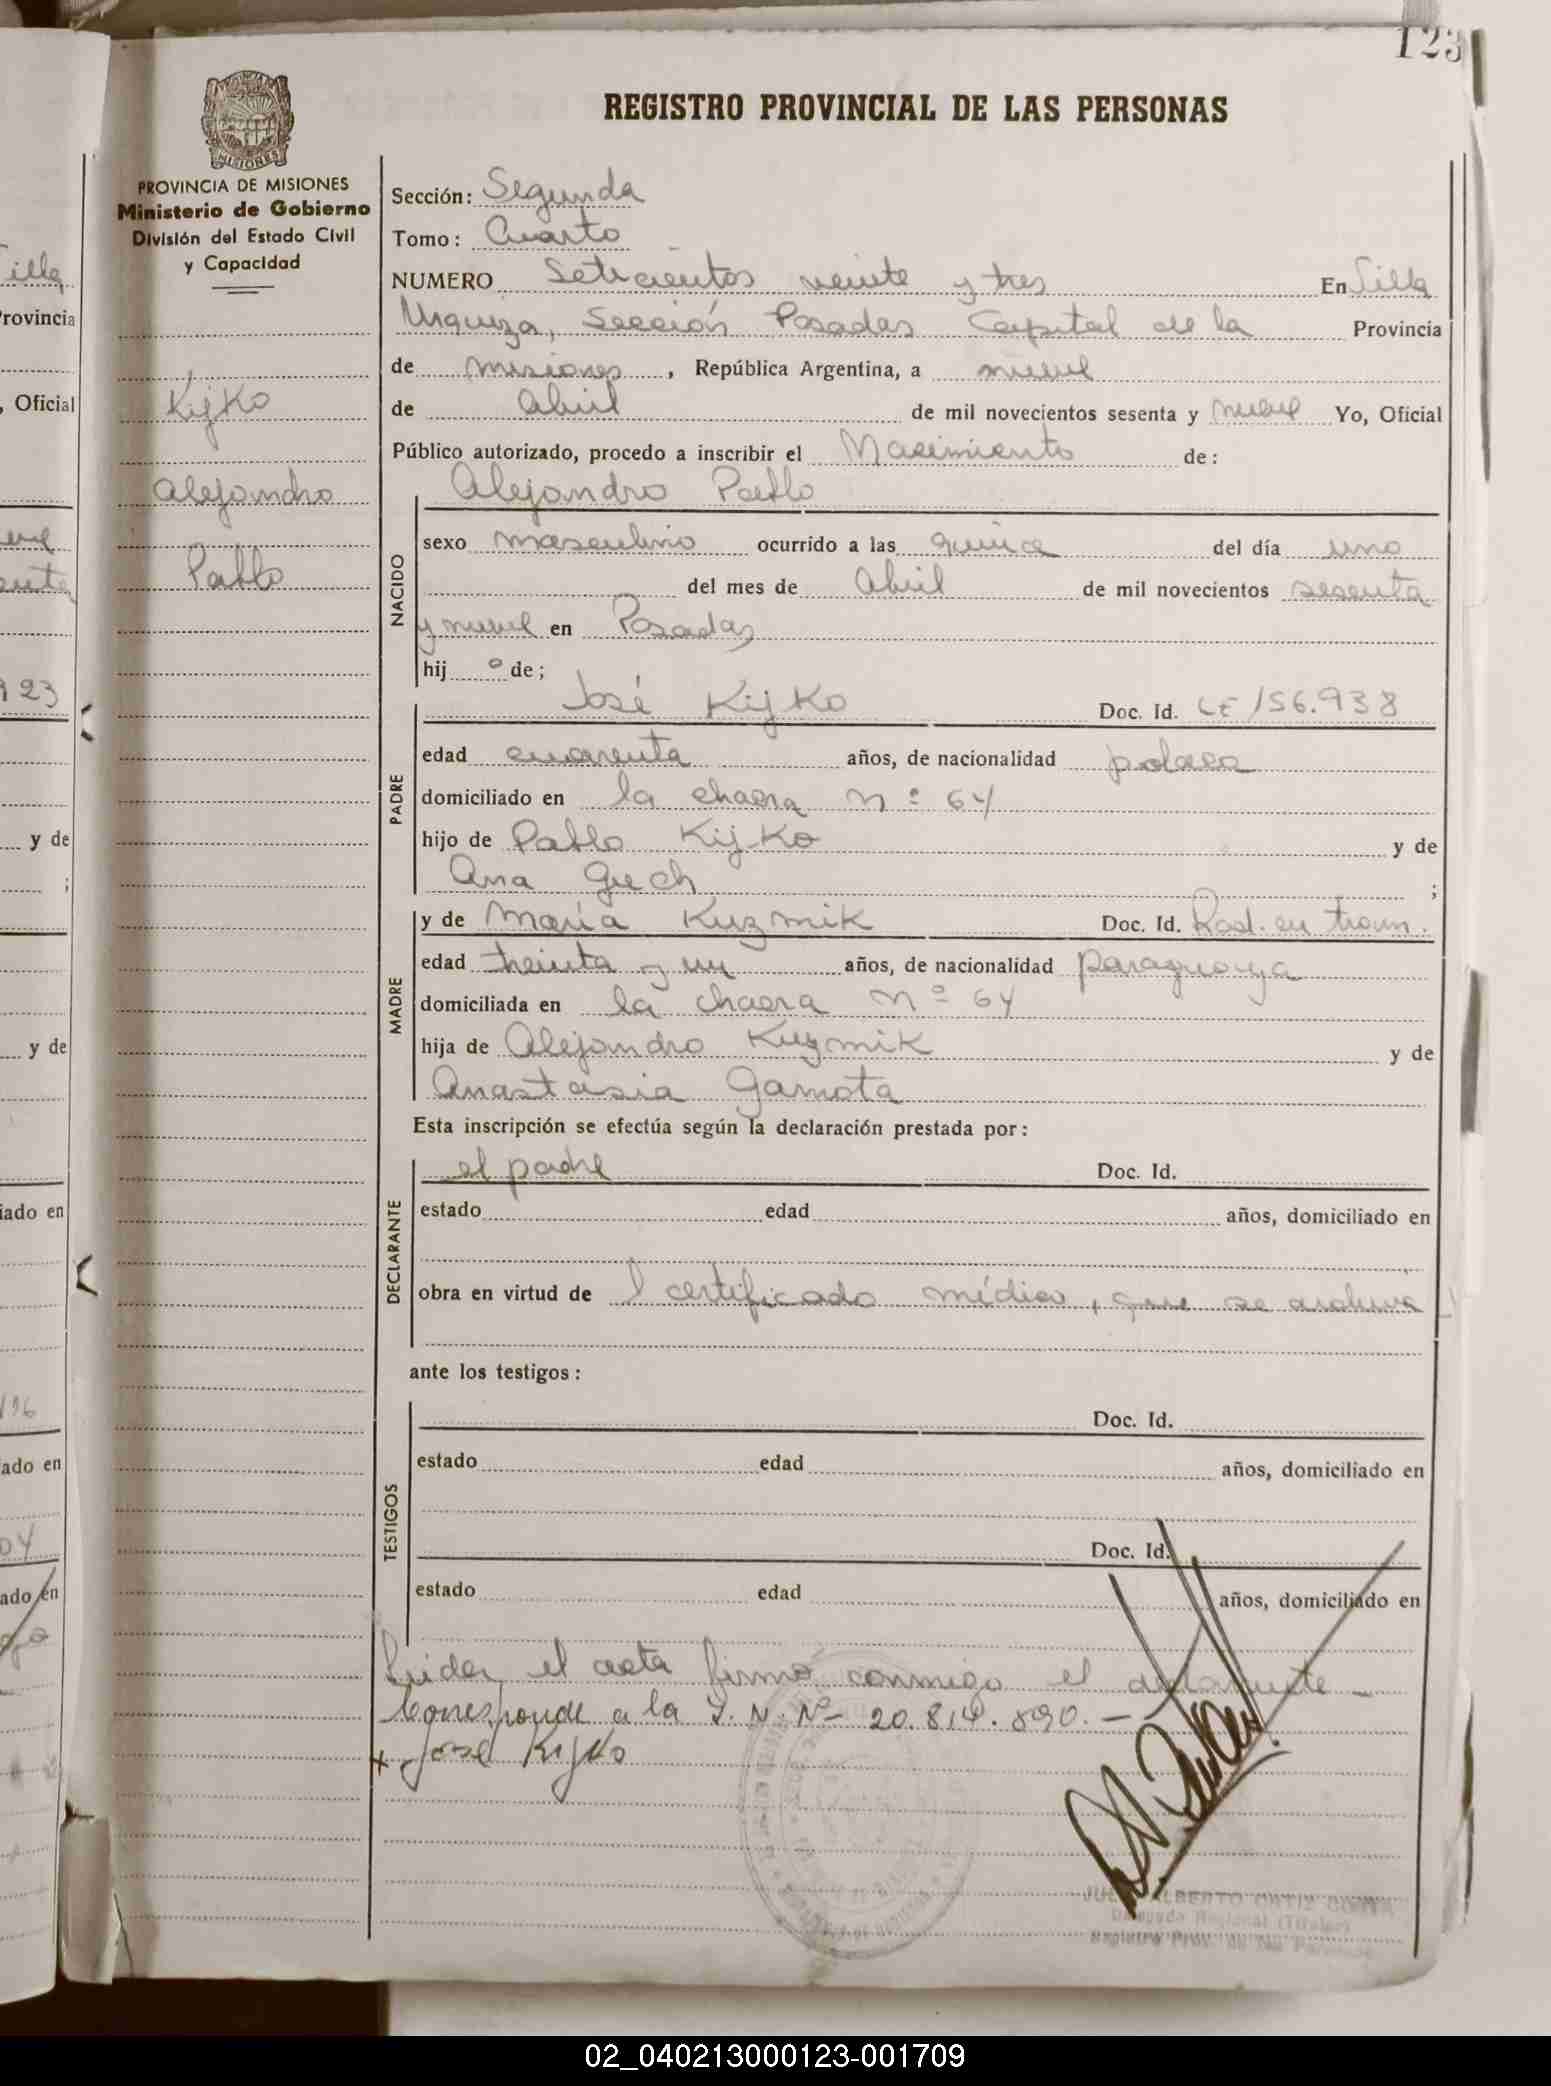 123
REGISTRO PROVINCIAL DE LAS PERSONAS
PROVINCIA DE MISIONES
Ministerio de Gobierno
División del Estado Civil
y Capacidad
Kijko
Alejandro
Pablo
Sección: Segunda
Tomo: Cuarto
NUMERO Setecientos veinte y tres En Villa
Urquiza, Sección Posadas Capital de la Provincia
de Misiones, República Argentina, a nueve
de abril de mil novecientos sesenta y nueve Yo, Oficial
Público autorizado, procedo a inscribir el Nacimiento de:
Alejandro Pablo
NACIDO
sexo masculino ocurrido a las quince del día uno
del mes de abril de mil novecientos sesenta
y nueve en Posadas
hij o de;
José Kijko Doc. Id. CE 156.938
PADRE
edad cuarenta años, de nacionalidad polaca
domiciliado en la chacra nº 64
hijo de Pablo Kijko y de
Ana Guch ;
y de María Kuzmik Doc. Id. Rad. en tram.
MADRE
edad treinta y un años, de nacionalidad paraguaya
domiciliada en la chacra nº 64
hija de Alejandro Kuzmik y de
Anastasia Gamota
Esta inscripción se efectúa según la declaración prestada por:
el padre Doc. Id.
DECLARANTE
estado edad años, domiciliado en
obra en virtud de l certificado médico, que se archiva
ante los testigos:
Doc. Id.
TESTIGOS
estado edad años, domiciliado en
Doc. Id.
estado edad años, domiciliado en
Leida el acta firmó conmigo el declarante —
Corresponde a la L. N. Nº 20.814.890. —
José Kijko
ALBERTO ORTIZ
Delegado Regional (Titular)
Registro Prov. de las Personas
, Oficial
Provincia
y de
;
y de
iado en
ado en
ado en
02_040213000123-001709